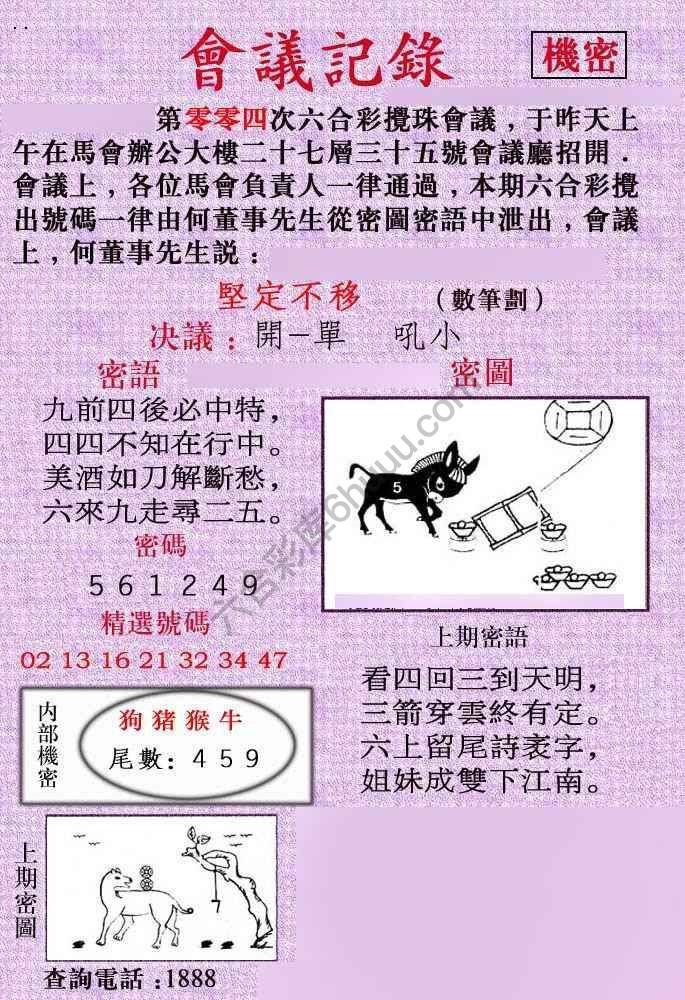 會議記錄
機密
第零零四次六合彩攪珠會議，于昨天上
午在馬會辦公大樓二十七層三十五號會議廳招開．
會議上，各位馬會負責人一律通過，本期六合彩攪
出號碼一律由何董事先生從密圖密語中泄出，會議
上，何董事先生説：
堅定不移 （數筆劃）
决議：開–單 吼小
密語
九前四後必中特，
四四不知在行中。
美酒如刀解斷愁，
六來九走尋二五。
密碼
561249
精選號碼
02 13 16 21 32 34 47
密圖
5
上期密語
看四回三到天明，
三箭穿雲終有定。
六上留尾詩袤字，
姐妹成雙下江南。
内部機密
狗豬猴牛
尾數：459
上期密圖
7
查詢電話:1888
六合彩库6huuu.com